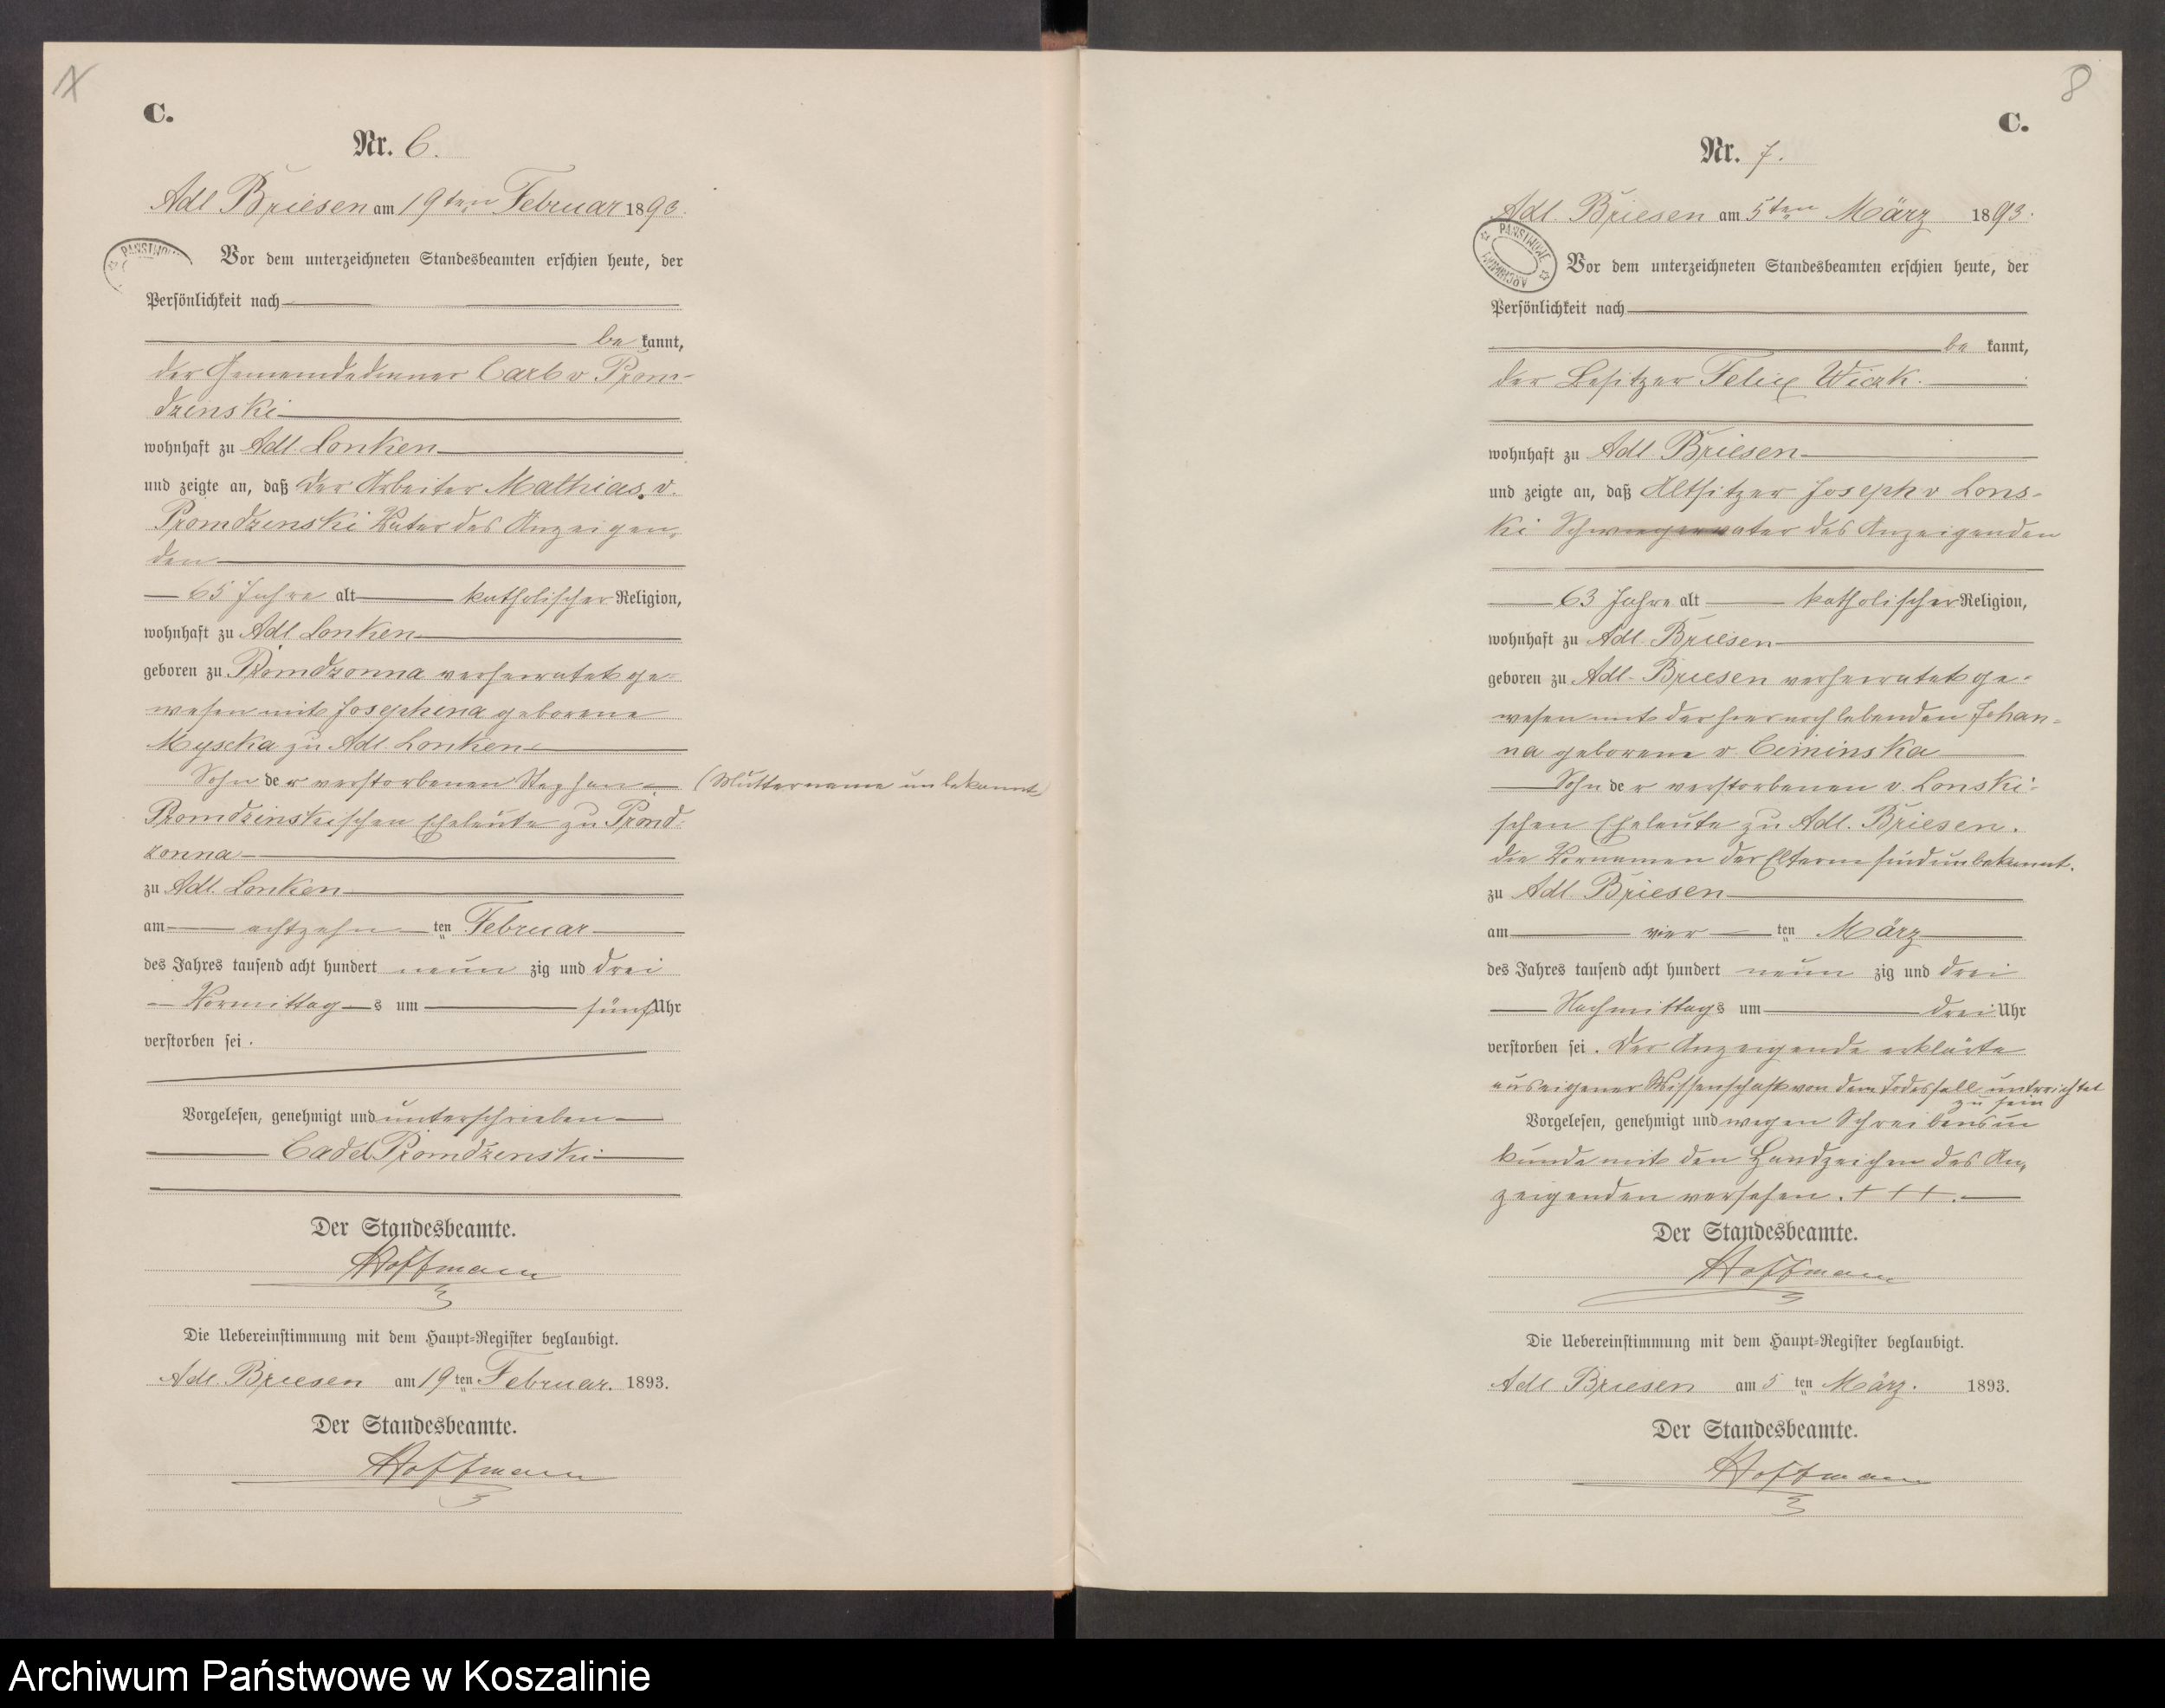 C.
Nr. 6.
Adl Briesen am 19ten Februar 1893.
PAŃSTWOW
Vor dem unterzeichneten Standesbeamten erschien heute, der
Persönlichkeit nach
be kannt,
der Gemeindediener Carl v Prom-
dzenski
wohnhaft zu Adl. Lonken
und zeigte an, daß der Arbeiter Mathias v.
Promdzenski Vater des Anzeigen-
den
65 Jahre alt katholischer Religion,
wohnhaft zu Adl Lonken
geboren zu Promdzonna verheiratet ge-
wesen mit Josephina geborene
Myscka zu Adl. Lonken
Sohn der verstorbenen Stephan (Muttername unbekannt)
Promdzinskischen Eheleute zu Prond-
zonna
zu Adl. Lonken
am achtzehn ten Februar
des Jahres tausend acht hundert neun zig und drei
Vormittag s um fünf Uhr
verstorben sei .
Vorgelesen, genehmigt und unterschrieben
Promdzenski
Der Standesbeamte.
Hoffmann
Die Uebereinstimmung mit dem Haupt-Register beglaubigt.
Adl. Briesen am 19ten Februar. 1893.
Der Standesbeamte.
Hoffmann
8
C.
Nr. 7.
Adl. Briesen am 5ten März 1893.
PAŃSTWOWE ARCHIWUM
Vor dem unterzeichneten Standesbeamten erschien heute, der
Persönlichkeit nach
be kannt,
der Besitzer Felix Wiczk.
wohnhaft zu Adl. Briesen
und zeigte an, daß Altsitzer Joseph v Lons-
ki Schwiegervater des Anzeigenden
63 Jahre alt katholischer Religion,
wohnhaft zu Adl. Briesen
geboren zu Adl. Briesen verheiratet ge-
wesen mit der hier noch lebenden Johan-
na geborene v Ciminska
Sohn der verstorbenen v. Lonski-
schen Eheleute zu Adl. Briesen.
die Vornamen der Eltern sind unbekannt.
zu Adl. Briesen
am vier ten März
des Jahres tausend acht hundert neun zig und drei
Nachmittags um drei Uhr
verstorben sei . Der Anzeigende erklärte
aus eigener Wissenschaft von dem Todesfall untrrichtet
zu sein
Vorgelesen, genehmigt und wegen Schreibensun
kunde mit den Handzeichen des An-
zeigenden versehen. + + +.
Der Standesbeamte.
Hoffmann
Die Uebereinstimmung mit dem Haupt-Register beglaubigt.
Adl Briesen am 5ten März. 1893.
Der Standesbeamte.
Hoffmann
Archiwum Państwowe w Koszalinie